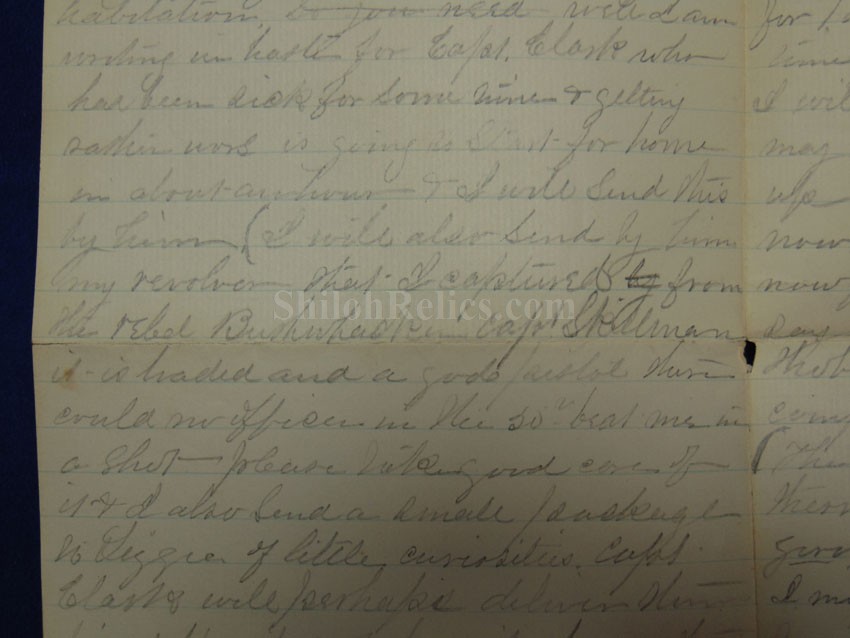 habitation, so you need will I am
writing in haste for Capt. Clark who
has been sick for some time & getting
rathin wors is going to start for home
in about an hour & I will send this
by him (I will also send by him
my revolver that I captured by from
the rebel Bushwhacker Capt Skilman
it is loaded and a good pistol there
could no officer in the 50th beat me in
a shot please take good care of
it & I also send a small package
to Lizzie of little curiosities. Capt.
Clark will perhaps deliver them
for
time
I will
may
up
now
now
day
that
(The
them
I
ShilohRelics.com